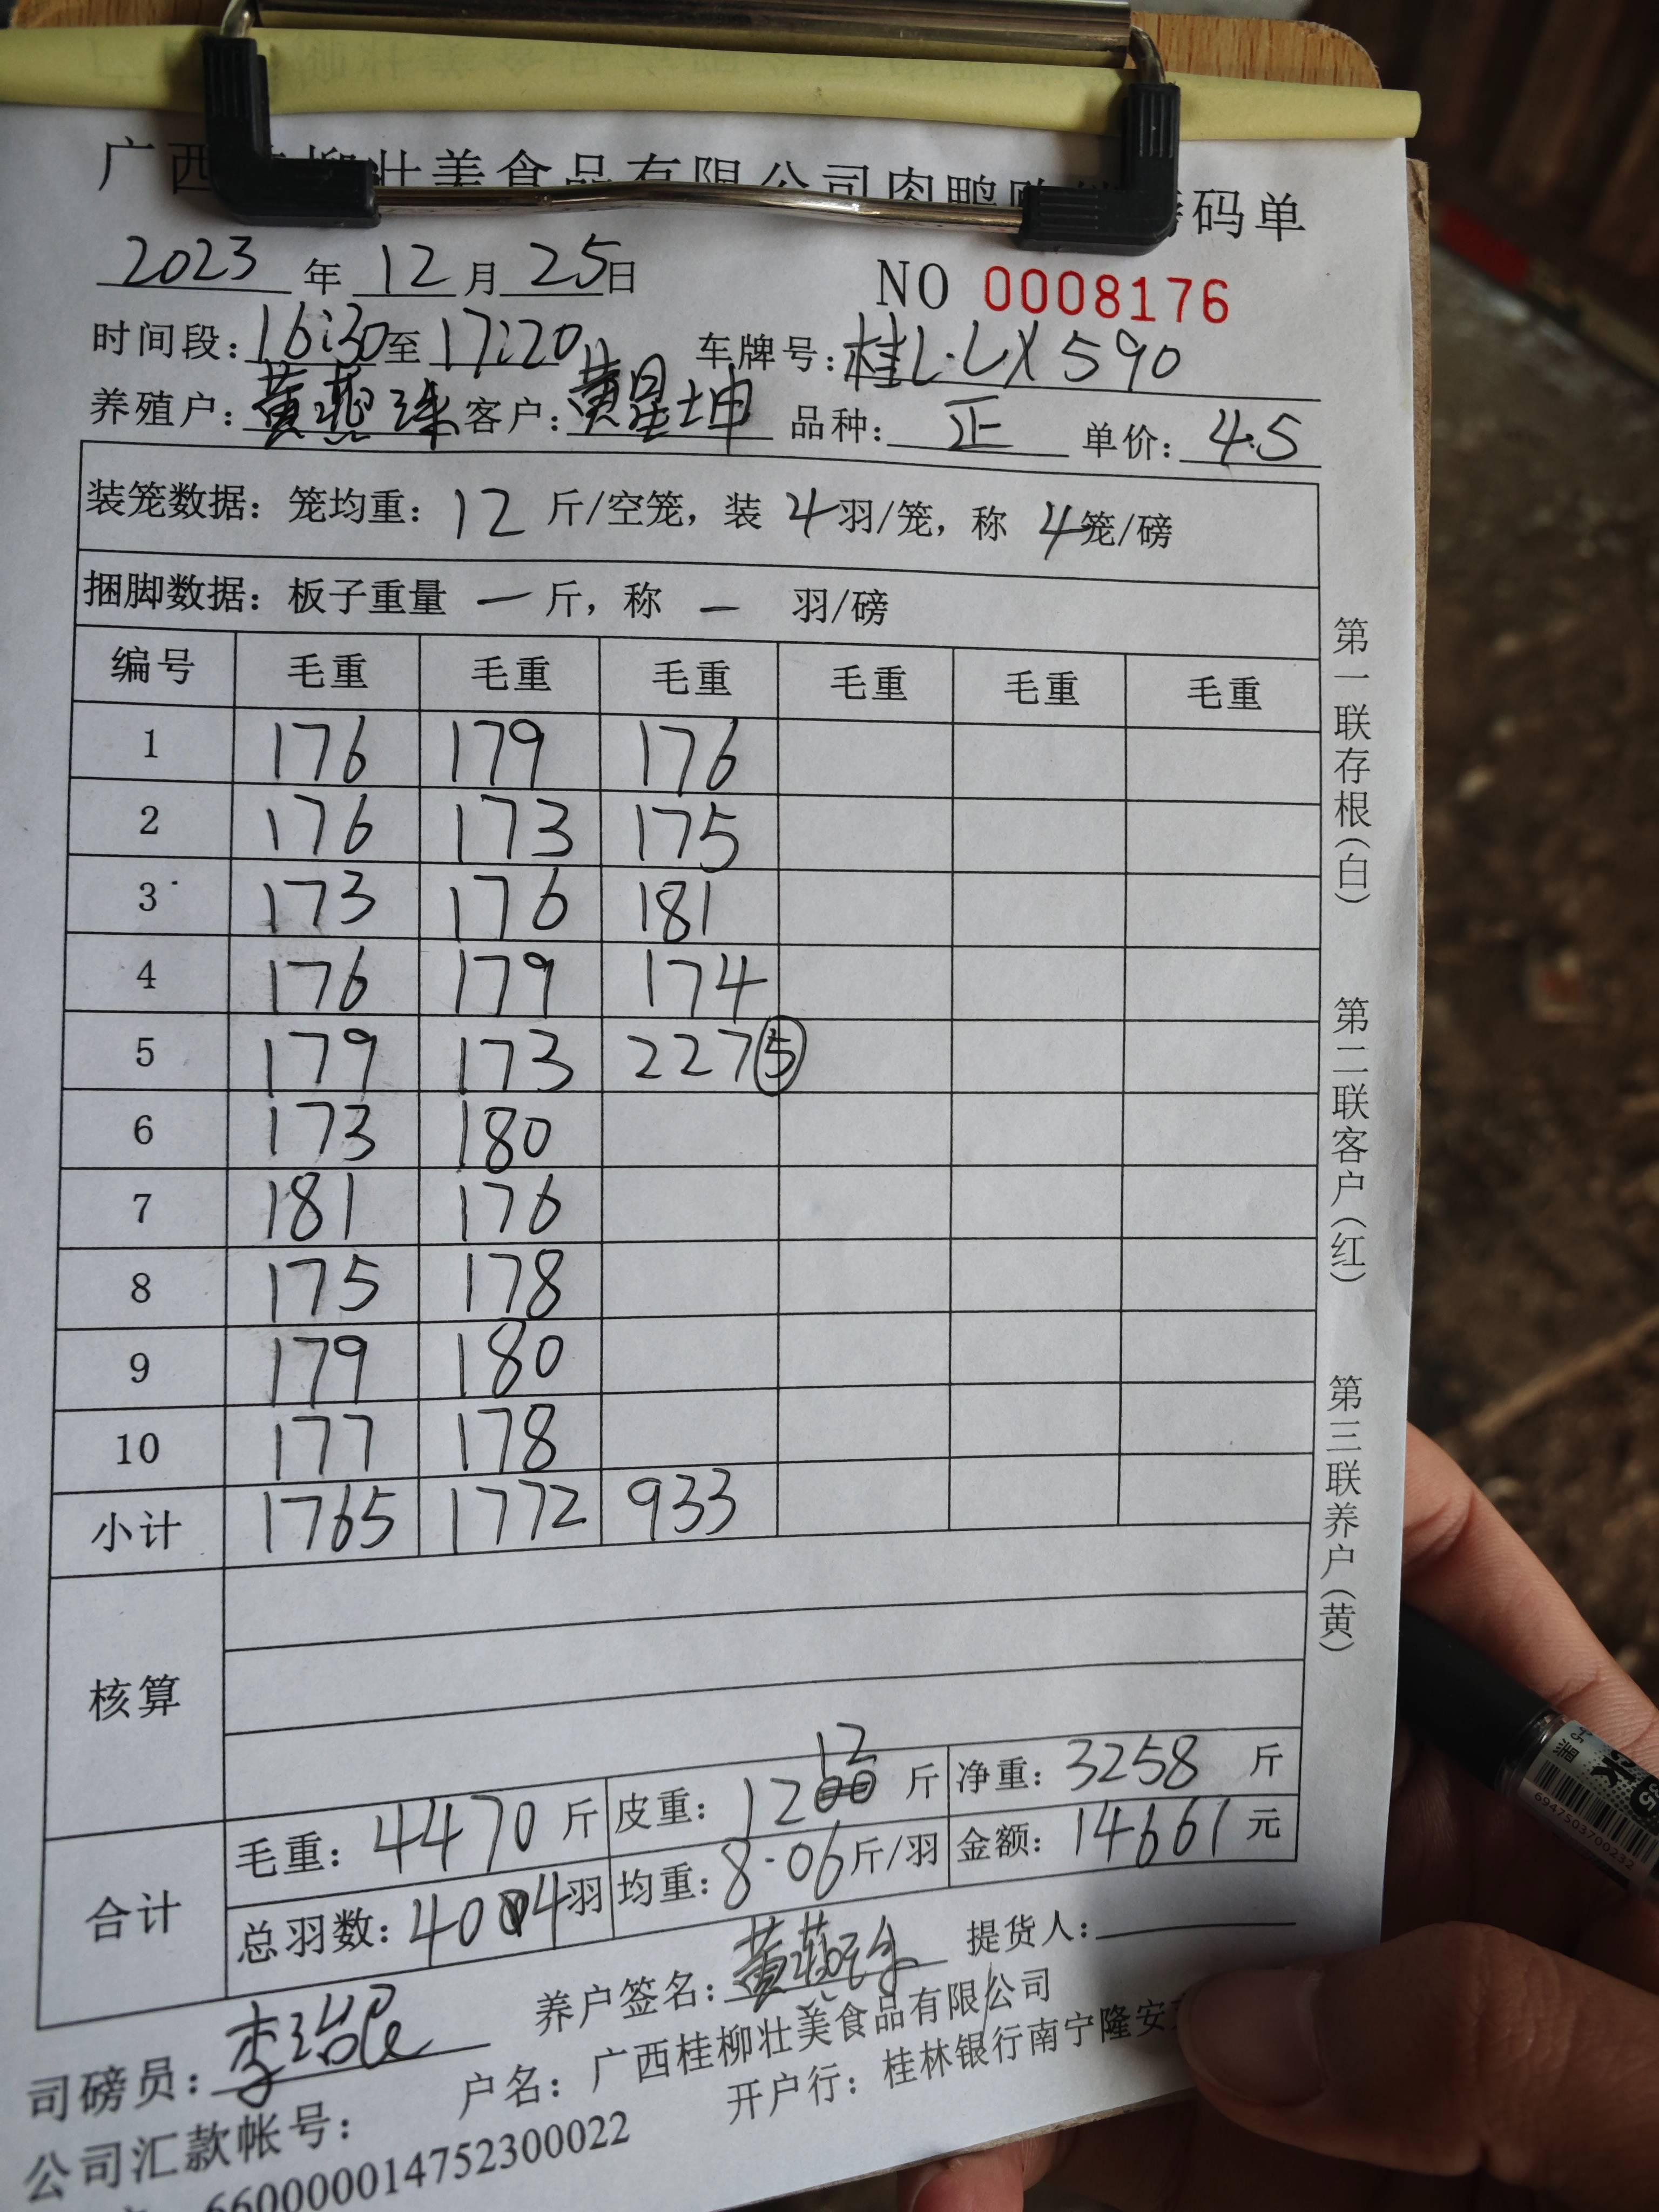 广西桂柳壮美食品有限公司肉鸭 码单
2023 年 12 月 25 日
NO 0008176
时间段: 16:30 至 17:20 车牌号: 桂L·LX590
养殖户: 黄燕珠 客户: 黄星坤 品种: 正 单价: 4.5
装笼数据: 笼均重: 12 斤/空笼, 装 4 羽/笼, 称 4 笼/磅
捆脚数据: 板子重量 — 斤, 称 — 羽/磅
编号 毛重 毛重 毛重 毛重 毛重 毛重
1 176 179 176
2 176 173 175
3 173 176 181
4 176 179 174
5 179 173 227⑤
6 173 180
7 181 176
8 175 178
9 179 180
10 177 178
小计 1765 1772 933
核算
合计
毛重: 4470 斤 皮重: 1212 斤 净重: 3258 斤
总羽数: 404 羽 均重: 8.06 斤/羽 金额: 14661 元
司磅员: 养户签名: 黄燕珠 提货人:
公司汇款帐号: 户名: 广西桂柳壮美食品有限公司
660000014752300022 开户行: 桂林银行南宁隆安
第一联存根(白)
第二联客户(红)
第三联养户(黄)
6947503700232